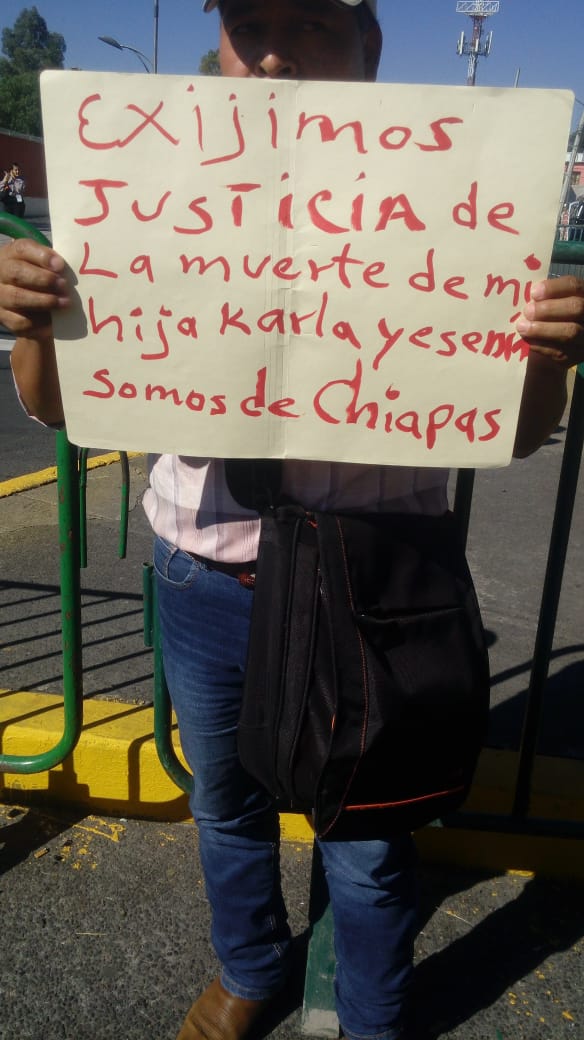 Exijimos
JUSTICIA de
La muerte de mi
hija Karla yesenia
somos de Chiapas